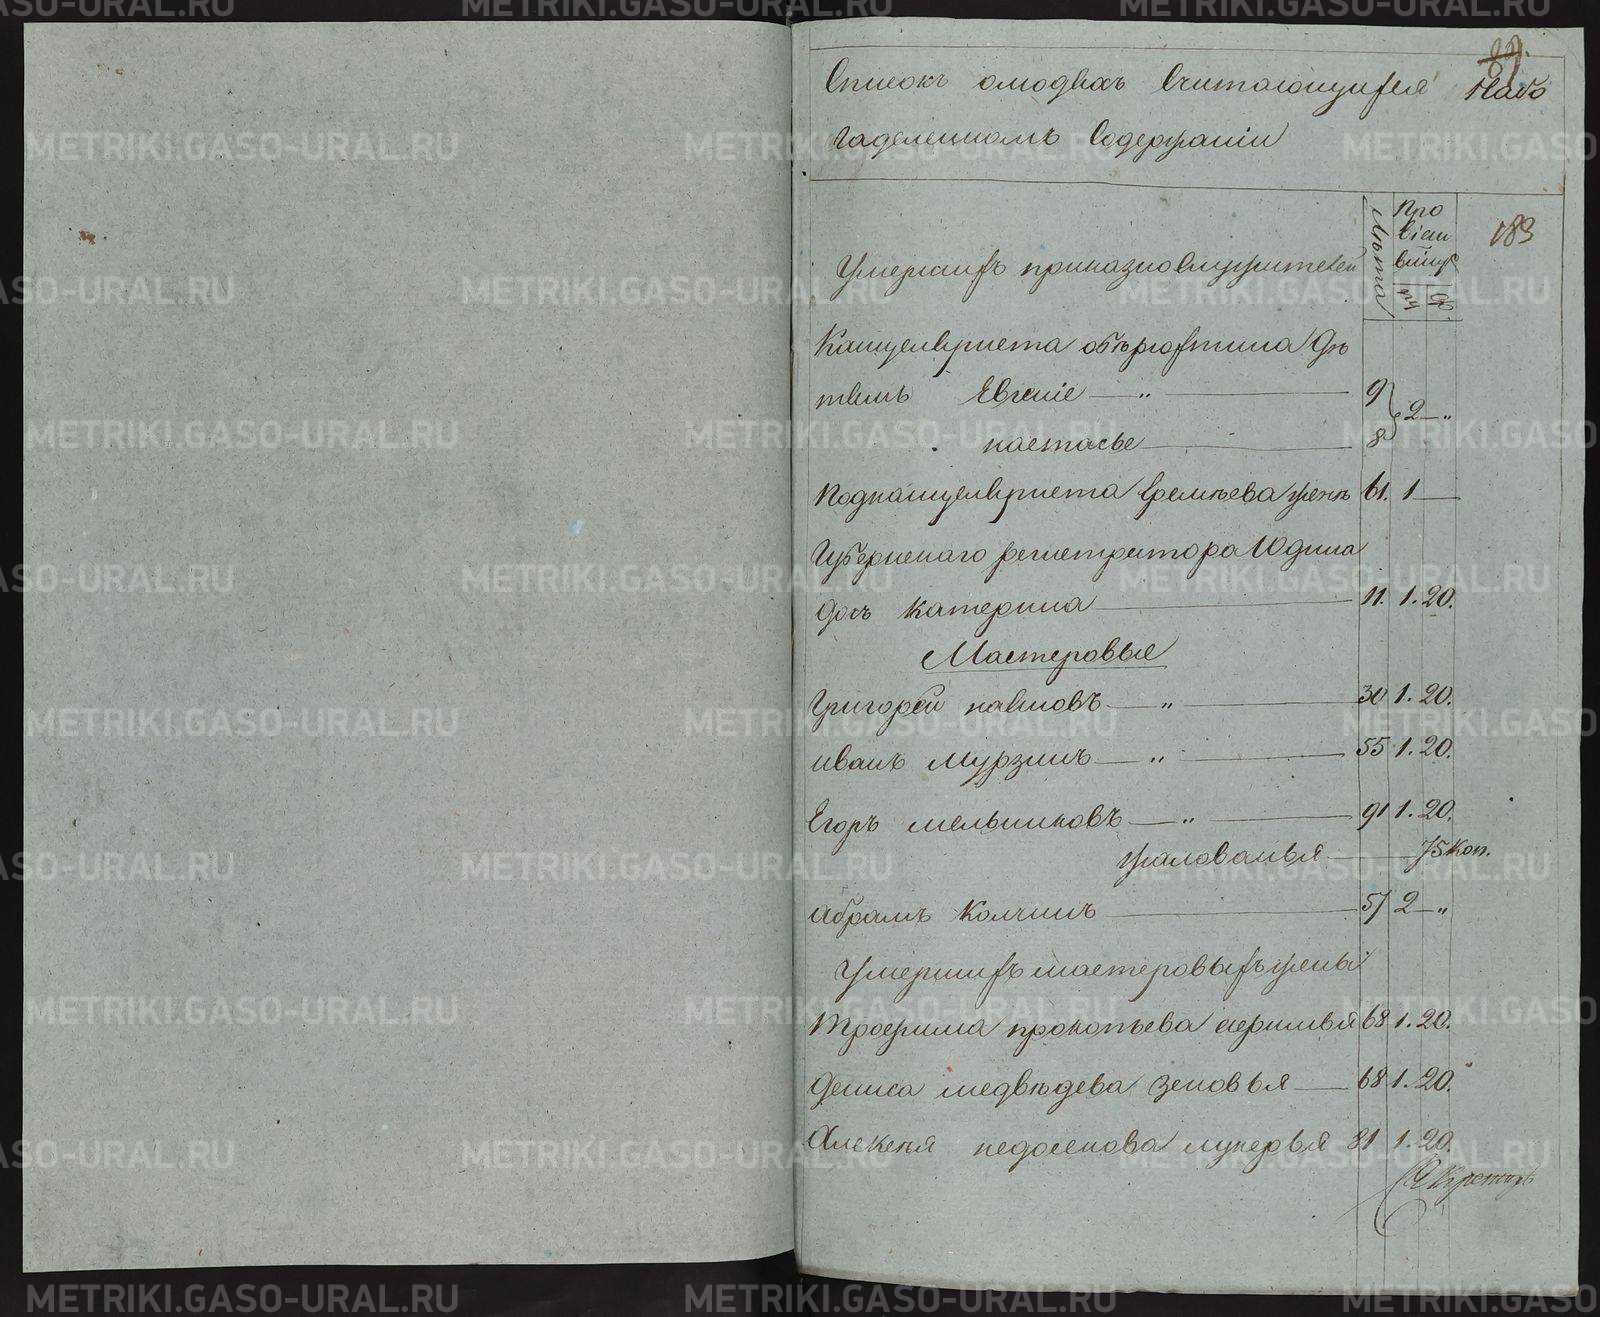 89.
Списокъ олюдяхъ Считающихся Набо
гаделенномъ Содержаніи
Лѣта
Про
віан
183
Умершихъ приказнослужителей
Канцеляриста
Дѣ
тямъ Евгеніе — „ — 9
2 — „
настасье — 8
Подканцеляриста Еремѣева женѣ 61. 1 —
Губернскаго регистратора Юдина
дочь Катерина — 11. 1. 20.
Мастеровые
Григорей павловъ — „ — 30 1. 20.
иванъ Мурзинъ — „ — 55 1. 20.
Егоръ мельниковъ — „ — 91 1. 20.
жалованья — 75 коп.
абрамъ Колчинъ — 57 2 — „
Умершихъ мастеровыхъ жены
трофима прокопьева 68 1. 20.
Дениса медвѣдева Зеновья — 68 1. 20.
Алексѣя лукерья 81 1. 20.
METRIKI.GASO-URAL.RU